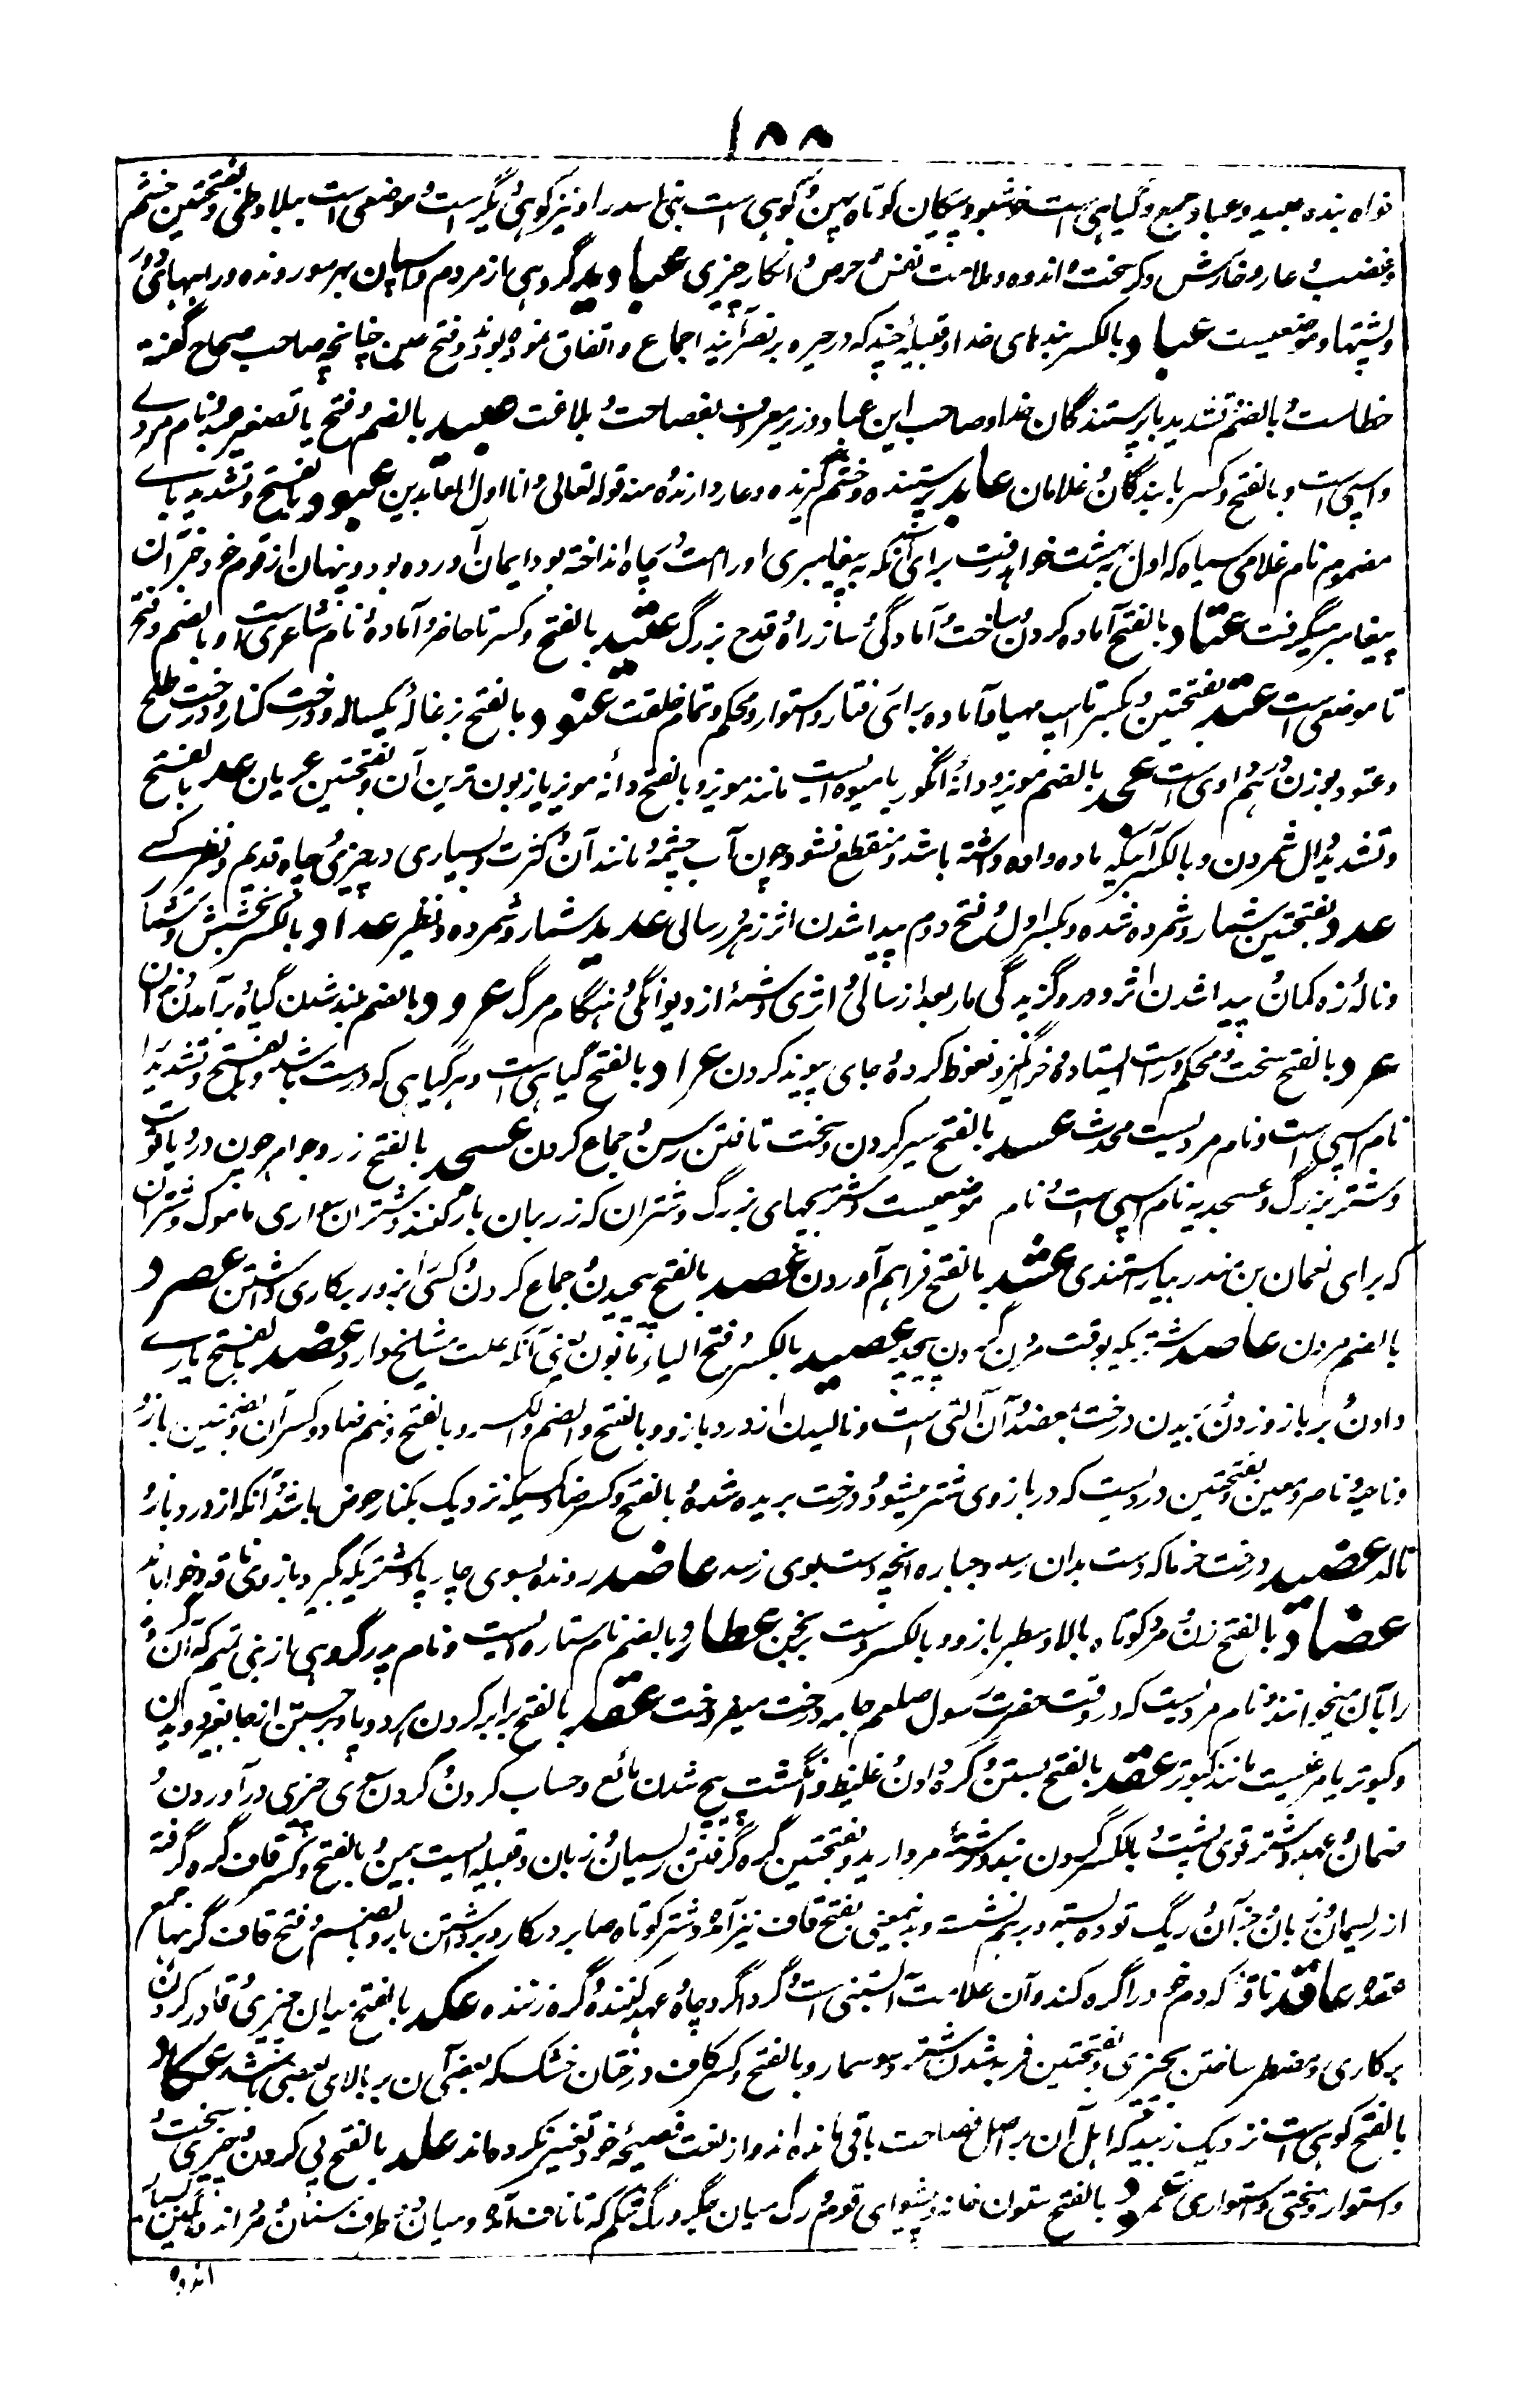 ١٨٨
خواه بنده عبید و عباد جمع و گیاهی است خوشبو و پیکان کوتاه پهن و کوهی است بنی اسد را و نیز کوهی دیگر است و موضعی است ببلاد طی و بفتحتین خشم
و غضب و عار و خارش و گر سخت و اندوه و ملامت نفس و حرص و انکار چیزی عبادید گروهی از مردم و اسپان بهر سو رونده و راههای دور
و پشتها و موضعیست عباد بالکسر بندهای خدا و قبیلهٔ چند که در حیره بر نصرانیت اجماع و اتفاق نموده بودند و فتح عین چنانچه صاحب صحاح گفته
خطاست و بالضم و تشدید با پرستندگان خدا و صاحب این عباد وزیر معروف بفصاحت و بلاغت عبید بالضم و فتح با تصغیر عبد و نام مردی
و اسپی است و بالفتح و کسر با بندگان و غلامان عابد پرستنده و خشم گیرنده و عار دارنده منه قوله تعالی و انا اول العابدین عبود بالفتح و تشدید بای
مضموم نام غلامی سیاه که اول به بهشت خواهد رفت برای آنکه به پیغامبری او را امت در چاه انداخته بود ایمان آورده بود و پنهان از قوم خود خبر آن
پیغامبر میگرفت عتاد بالفتح آماده کردن و ساخت و آمادگی و ساز راه و قدح بزرگ عتید بالفتح و کسر تا حاضر و آماده و نام شاعری است و بالضم و فتح
تا موضعی است عتد بفتحتین و بکسر تا اسپ مهیا و آماده برای رفتار و استوار و محکم و تمام خلقت عتود بالفتح بزغالهٔ یکساله و درخت کنار و درخت طلح
و عتود بوزن درهم وادی است عجد بالضم مویز و دانهٔ انگور یا میوه ایست مانند مویز و بالفتح دانه مویز یا زبون ترین آن و بفتحتین عریان عد بالفتح
و تشدید دال شمردن و بالکسر آبیکه ماده واده داشته باشد و منقطع نشود چون آب چشمه و مانند آن و کثرت و بسیاری در چیزی و چاه قدیم و نظر کسی
عدد بفتحتین شمار و شمرده شده و بکسر اول و فتح دوم پیدا شدن اثر زهر رسالی عدید شمار و شمرده و نظیر عداد بالکسر بخشش و شمار
و نالهٔ زه کمان و پیدا شدن اثر و درد گزیدگی مار بعد از سالی و اثری و شمهٔ از دیوانگی و هنگام مرگ عرود بالضم بلند شدن گیاه و برآمدن دندان
عرد بالفتح سخت و محکم و راست ایستاده و خر گریز و نعوظ کرده و جای پیوند کردن عراد بالفتح گیاهی است و هر گیاهی که درشت باشد و بالفتح و تشدید را
نام اسپی است و نام مردیست محدث عسد بالفتح سیر کردن و سخت تافتن رسن و جماع کردن عسجد بالفتح زر و جواهر چون در و یاقوت
و شتر بزرگ و عسجدیه نام اسپی است و نام موضعیست و شتر بچهای بزرگ و شتران که زر بان بار کنند و شتران سواری ملوک و شتران
که برای نعمان بن منذر بیاراستندی عشد بالفتح فراهم آوردن عصد بالفتح پیچیدن و جماع کردن و کسی را بزور بر کاری داشتن عصود
بالضم مردن عاصد شتریکه بوقت مردن گردن پیچد عصید بالکسر و فتح الیاء مانون یعنی آنکه علت مشایخ دارد عضد بالفتح یاری
دادن و بر بازو زدن و بریدن درخت و معضد و آن آلتی است و نالیدن از درد بازو و بالفتح و الضم و الکسر و بالفتح و ضم ضاد و کسر آن و بضمتین بازو
و ناحیه و ناصر و معین و بفتحتین دردیست که در بازوی شتر میشود و درخت بریده شده و بالفتح و کسر ضاد کسیکه نزدیک بکنار حوض باشد و آنکه از درد بازو
نالد عضید درخت خرما که دست بدان رسد و جباره آنچه دست بلوی نرسد عاضد رونده بسوی چارپا و شتریکه بگیرد بازوی ناقه و خواباند
عضاد بالفتح زن و مرد کوتاه بالا و سطبر بازو و بالکسر دست برنجن عطارد بالضم نام ستاره ایست و نام پدر گروهی از بنی تمیم که آن گروه
را بآن میخوانند و نام مردیست که در وقت حضرت رسول صلعم جامه درخت میفروخت عقد بالفتح برابر کردن هر دو پا و برجستن از جا بغیر دویدن
و کبوتر یا مرغیست مانند کبوتر عقد بالفتح بستن و گره دادن و غلیظ و انگشت پیچ شدن مائع و حساب کردن و گردن سوی چیزی در آوردن و
ضمان و عهد و شتر قوی پشت و بالکسر گردن بند و رشته مروارید و بفتحتین گره گرفتن ریسمان و زبان و قبیله ایست بیمن و بالفتح و کسر قاف گره گرفته
از ریسمان و زبان و جز آن و ریگ توده بسته و بر هم نشست و بدینمعنی بفتح قاف نیز آمده و شتر کوتاه صابر در کار و برداشتن بار و بالضم و فتح قاف گرهها جمع
عقده عاقد ناقهٔ که دم خود را گره کند و آن علامت آبستنی است و گرداگرد چاه و عهد کننده و گره زننده عکد بالفتح میان چیزی و قادر کردن
بر کاری و مضطر ساختن بچیزی و بفتحتین فربه شدن شتر و سوسمار و بالفتح و کسر کاف درختان خشک که بعضی آن بر بالای بعضی باشد عکاد
بالفتح کوهی است نزدیک زبید که اهل آن بر اصل فصاحت باقی مانده اند و از لغت فصیحهٔ خود تغییر نکرده اند علد بالفتح پی کردن و چیزی سخت و
استوار و سختی و استواری عمود بالفتح ستون خانه و پیشوای قوم و رگ میان جگر و رگ شکم که تا ناف آمده و میان دو طرف سنان و مرد اندوهگین بسیار
اندوه